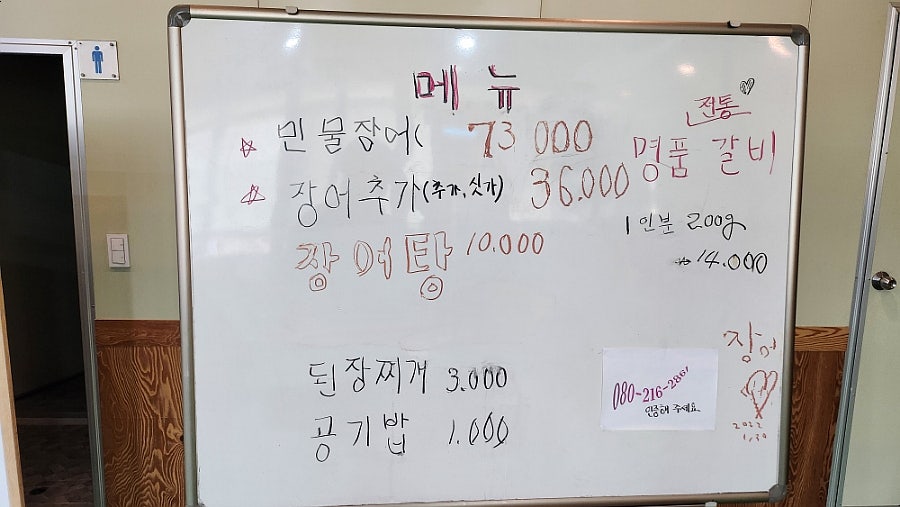 메뉴
민물장어( 73 000
장어추가(추가,싯가) 36.000
장어탕 10.000
된장찌개 3.000
공기밥 1.000
전통
명품 갈비
1인분 200g
14.000
장어
2022
1.30
080-216-2861
인증해 주세요